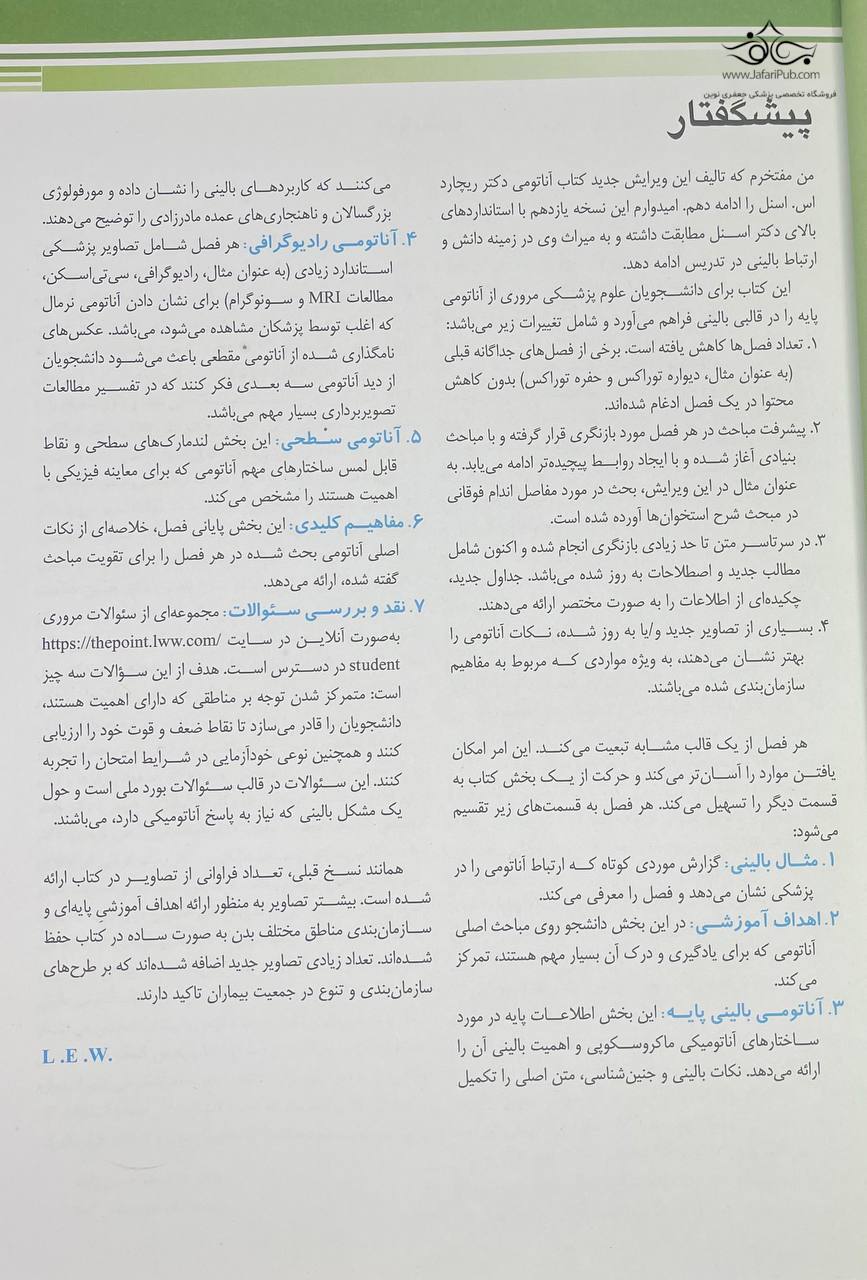 www.JafariPub.com
فروشگاه تخصصی پزشکی جعفری نوین
پیشگفتار
من مفتخرم که تالیف این ویرایش جدید کتاب آناتومی دکتر ریچارد
اس. اسنل را ادامه دهم. امیدوارم این نسخه یازدهم با استانداردهای
بالای دکتر اسنل مطابقت داشته و به میراث وی در زمینه دانش و
ارتباط بالینی در تدریس ادامه دهد.
این کتاب برای دانشجویان علوم پزشکی مروری از آناتومی
پایه را در قالبی بالینی فراهم می‌آورد و شامل تغییرات زیر می‌باشد:
۱. تعداد فصل‌ها کاهش یافته است. برخی از فصل‌های جداگانه قبلی
(به عنوان مثال، دیواره توراکس و حفره توراکس) بدون کاهش
محتوا در یک فصل ادغام شده‌اند.
۲. پیشرفت مباحث در هر فصل مورد بازنگری قرار گرفته و با مباحث
بنیادی آغاز شده و با ایجاد روابط پیچیده‌تر ادامه می‌یابد. به
عنوان مثال در این ویرایش، بحث در مورد مفاصل اندام فوقانی
در مبحث شرح استخوان‌ها آورده شده است.
۳. در سرتاسر متن تا حد زیادی بازنگری انجام شده و اکنون شامل
مطالب جدید و اصطلاحات به روز شده می‌باشد. جداول جدید،
چکیده‌ای از اطلاعات را به صورت مختصر ارائه می‌دهند.
۴. بسیاری از تصاویر جدید و/یا به روز شده، نکات آناتومی را
بهتر نشان می‌دهند، به ویژه مواردی که مربوط به مفاهیم
سازمان‌بندی شده می‌باشند.
هر فصل از یک قالب مشابه تبعیت می‌کند. این امر امکان
یافتن موارد را آسان‌تر می‌کند و حرکت از یک بخش کتاب به
قسمت دیگر را تسهیل می‌کند. هر فصل به قسمت‌های زیر تقسیم
می‌شود:
۱. مثال بالینی: گزارش موردی کوتاه که ارتباط آناتومی را در
پزشکی نشان می‌دهد و فصل را معرفی می‌کند.
۲. اهداف آموزشی: در این بخش دانشجو روی مباحث اصلی
آناتومی که برای یادگیری و درک آن بسیار مهم هستند، تمرکز
می‌کند.
۳. آناتومی بالینی پایه: این بخش اطلاعات پایه در مورد
ساختارهای آناتومیکی ماکروسکوپی و اهمیت بالینی آن را
ارائه می‌دهد. نکات بالینی و جنین‌شناسی، متن اصلی را تکمیل
می‌کنند که کاربردهای بالینی را نشان داده و مورفولوژی
بزرگسالان و ناهنجاری‌های عمده مادرزادی را توضیح می‌دهند.
۴. آناتومی رادیوگرافی: هر فصل شامل تصاویر پزشکی
استاندارد زیادی (به عنوان مثال، رادیوگرافی، سی‌تی‌اسکن،
مطالعات MRI و سونوگرام) برای نشان دادن آناتومی نرمال
که اغلب توسط پزشکان مشاهده می‌شود، می‌باشد. عکس‌های
نامگذاری شده از آناتومی مقطعی باعث می‌شود دانشجویان
از دید آناتومی سه بعدی فکر کنند که در تفسیر مطالعات
تصویربرداری بسیار مهم می‌باشد.
۵. آناتومی سطحی: این بخش لندمارک‌های سطحی و نقاط
قابل لمس ساختارهای مهم آناتومی که برای معاینه فیزیکی با
اهمیت هستند را مشخص می‌کند.
۶. مفاهیم کلیدی: این بخش پایانی فصل، خلاصه‌ای از نکات
اصلی آناتومی بحث شده در هر فصل را برای تقویت مباحث
گفته شده، ارائه می‌دهد.
۷. نقد و بررسی سئوالات: مجموعه‌ای از سئوالات مروری
به‌صورت آنلاین در سایت https://thepoint.lww.com/
student در دسترس است. هدف از این سؤالات سه چیز
است: متمرکز شدن توجه بر مناطقی که دارای اهمیت هستند،
دانشجویان را قادر می‌سازد تا نقاط ضعف و قوت خود را ارزیابی
کنند و همچنین نوعی خودآزمایی در شرایط امتحان را تجربه
کنند. این سئوالات در قالب سئوالات بورد ملی است و حول
یک مشکل بالینی که نیاز به پاسخ آناتومیکی دارد، می‌باشند.
همانند نسخ قبلی، تعداد فراوانی از تصاویر در کتاب ارائه
شده است. بیشتر تصاویر به منظور ارائه اهداف آموزشیِ پایه‌ای و
سازمان‌بندی مناطق مختلف بدن به صورت ساده در کتاب حفظ
شده‌اند. تعداد زیادی تصاویر جدید اضافه شده‌اند که بر طرح‌های
سازمان‌بندی و تنوع در جمعیت بیماران تاکید دارند.
L .E .W.